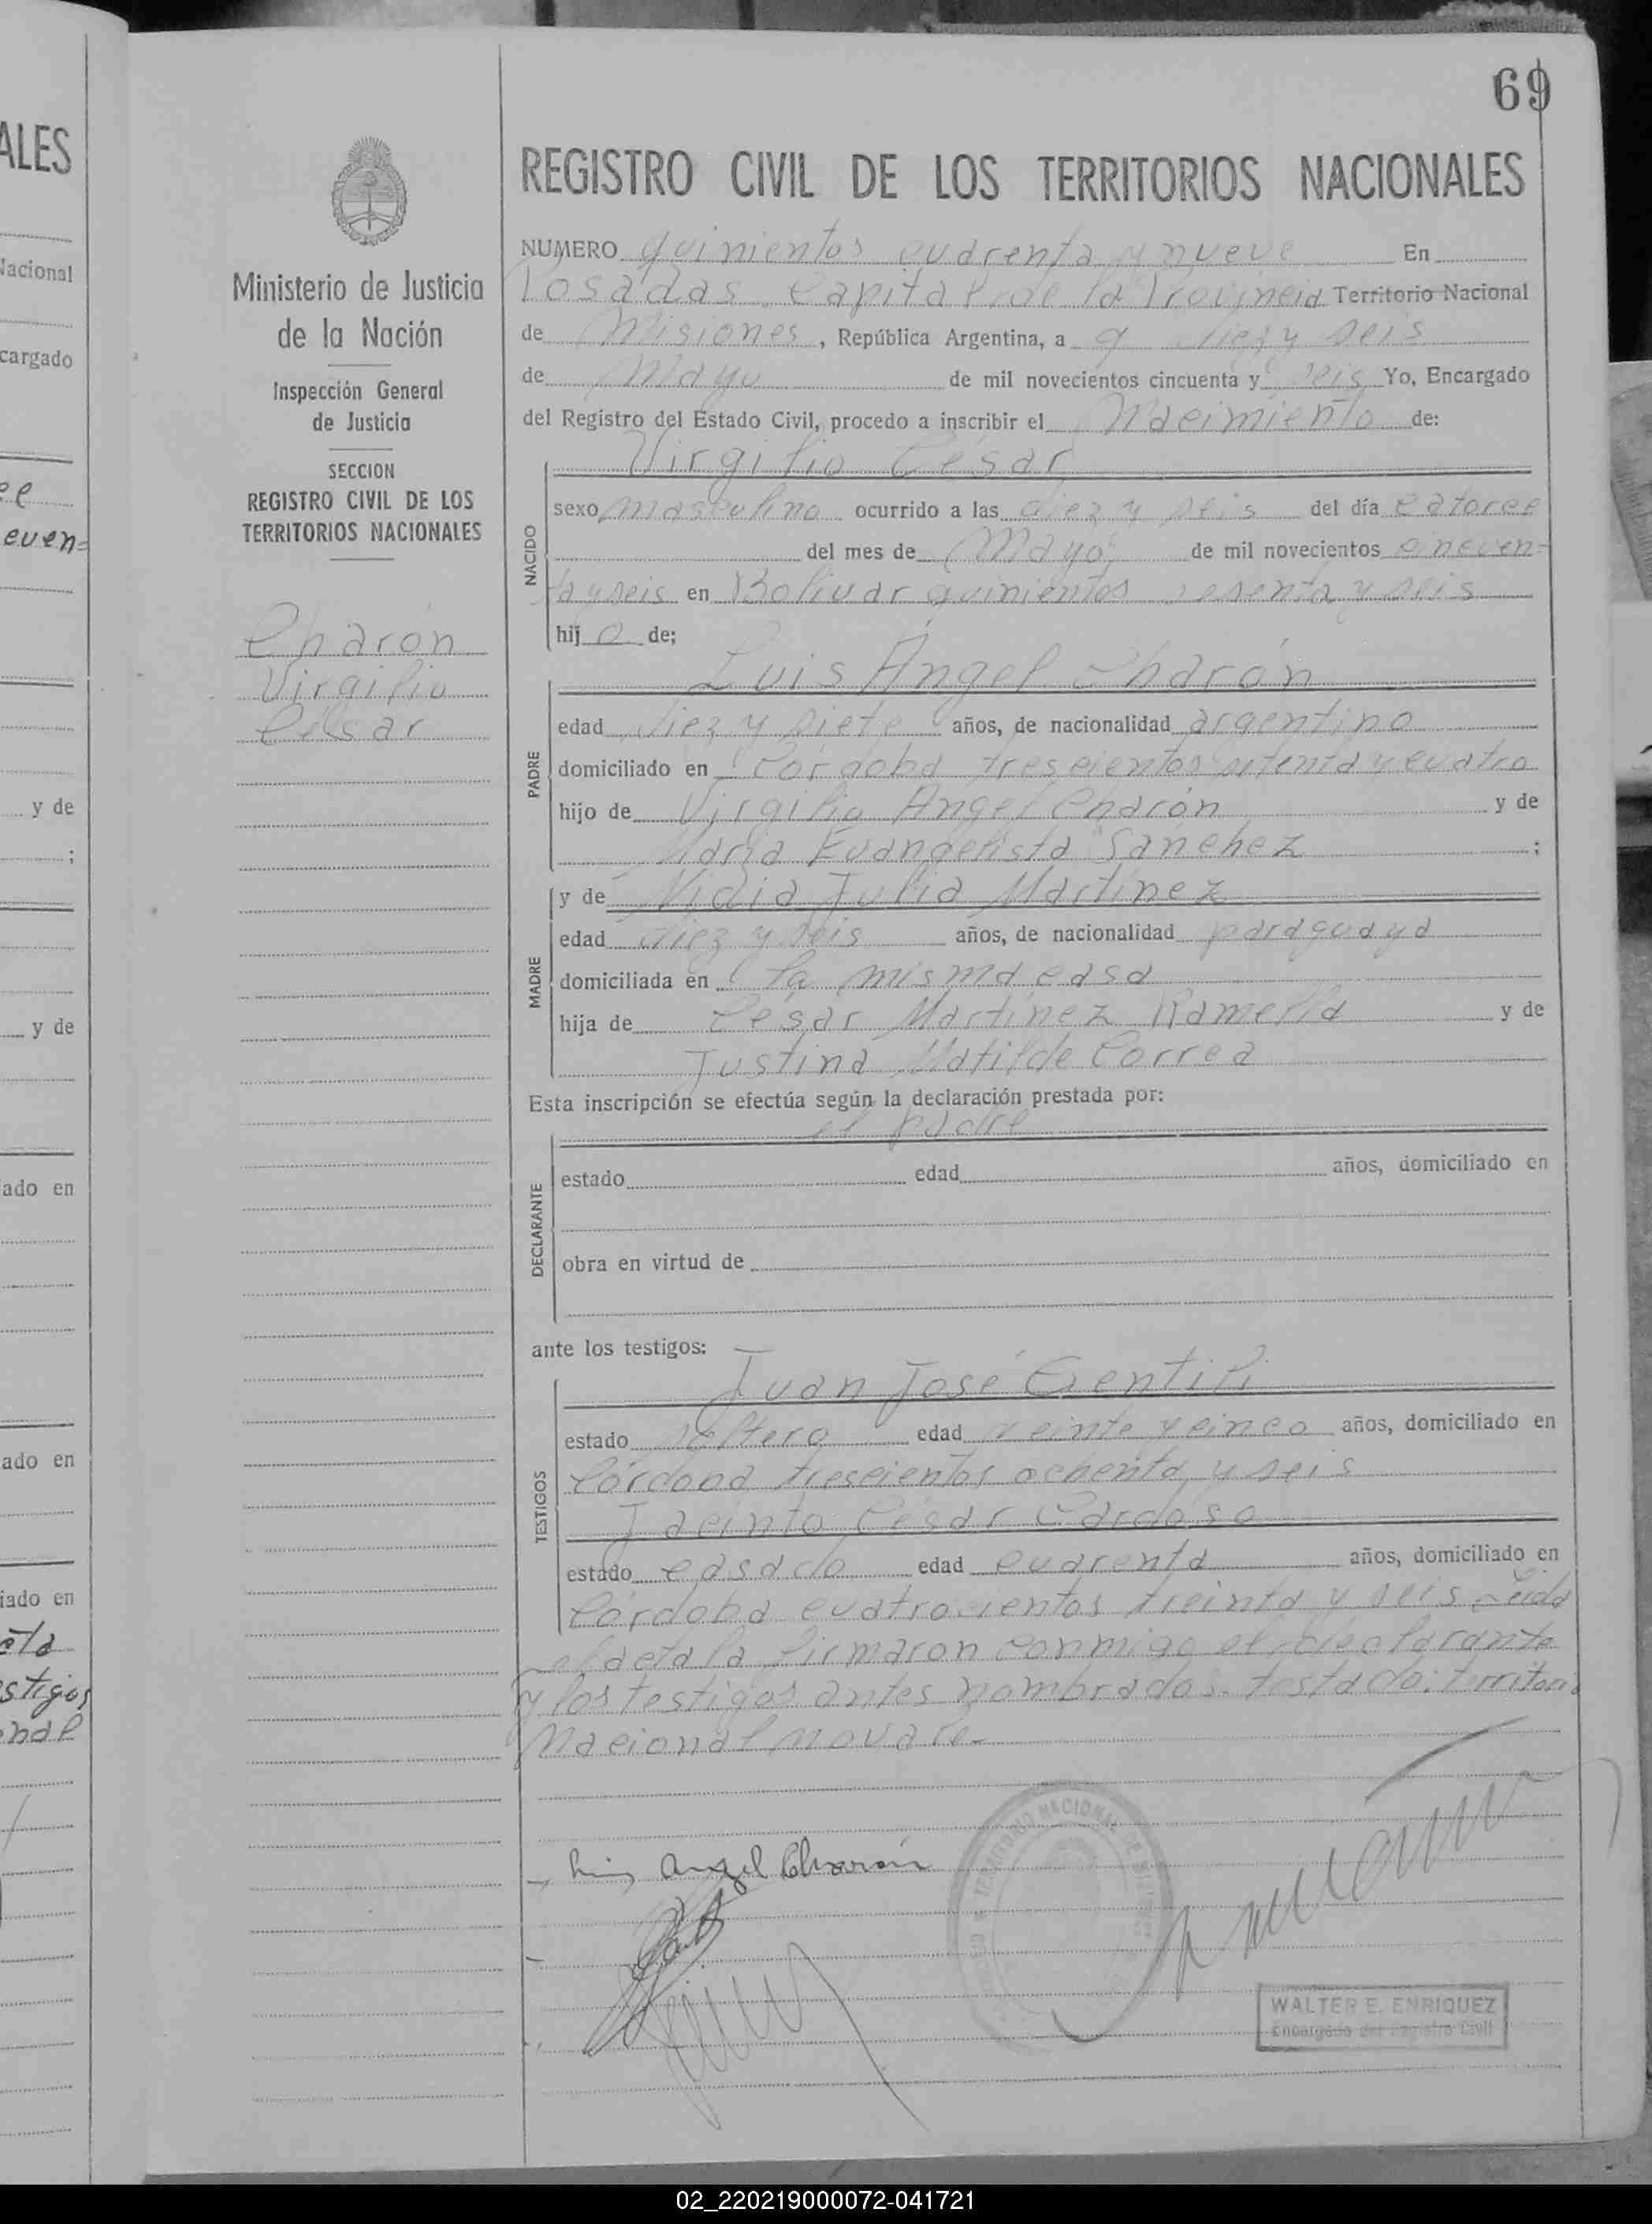 ALES
Nacional
cargado
ce
even=
y de
;
y de
ado en
ado en
iado en
stigos
onal
69
Ministerio de Justicia
de la Nación
Inspección General
de Justicia
SECCION
REGISTRO CIVIL DE LOS
TERRITORIOS NACIONALES
Charón
Virgilio
César
REGISTRO CIVIL DE LOS TERRITORIOS NACIONALES
NUMERO quinientos cuarenta y nueve En
Posadas Capital de la Provincia Territorio Nacional
de Misiones, República Argentina, a diez y seis
de Mayo de mil novecientos cincuenta y seis Yo, Encargado
del Registro del Estado Civil, procedo a inscribir el Nacimiento de:
Virgilio César
NACIDO
sexo masculino ocurrido a las diez y seis del día catorce
del mes de Mayo de mil novecientos cincuen=
ta y seis en Bolivar quinientos sesenta y seis
hijo de;
Luis Ángel Charón
PADRE
edad diez y siete años, de nacionalidad argentino
domiciliado en Córdoba trescientos setenta y cuatro
hijo de Virgilio Angel Charón y de
María Evangelista Sánchez ;
y de Nidia Julia Martínez
MADRE
edad diez y seis años, de nacionalidad paraguaya
domiciliada en la misma casa
hija de César Martínez Ramella y de
Justina Matilde Correa
Esta inscripción se efectúa según la declaración prestada por:
el padre
DECLARANTE
estado edad años, domiciliado en
obra en virtud de
ante los testigos:
Juan José Gentili
TESTIGOS
estado soltero edad veinte y cinco años, domiciliado en
Córdoba trescientos ochenta y seis
Jacinto César Cardoso
estado casado edad cuarenta años, domiciliado en
Córdoba cuatrocientos treinta y seis Leida
el acta la firmaron conmigo el declarante
y los testigos antes nombrados. testado: territorio
Nacional no vale.-
Luis Angel Charón
TERRITORIO NACIONAL DE MISIONES
WALTER E. ENRIQUEZ
Encargado del Registro Civil
02_220219000072-041721